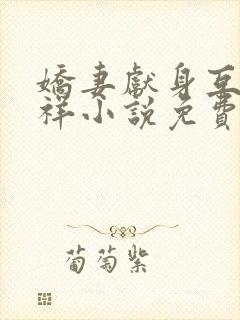 嬌妻獻身互
祥小說免費
葡萄紫